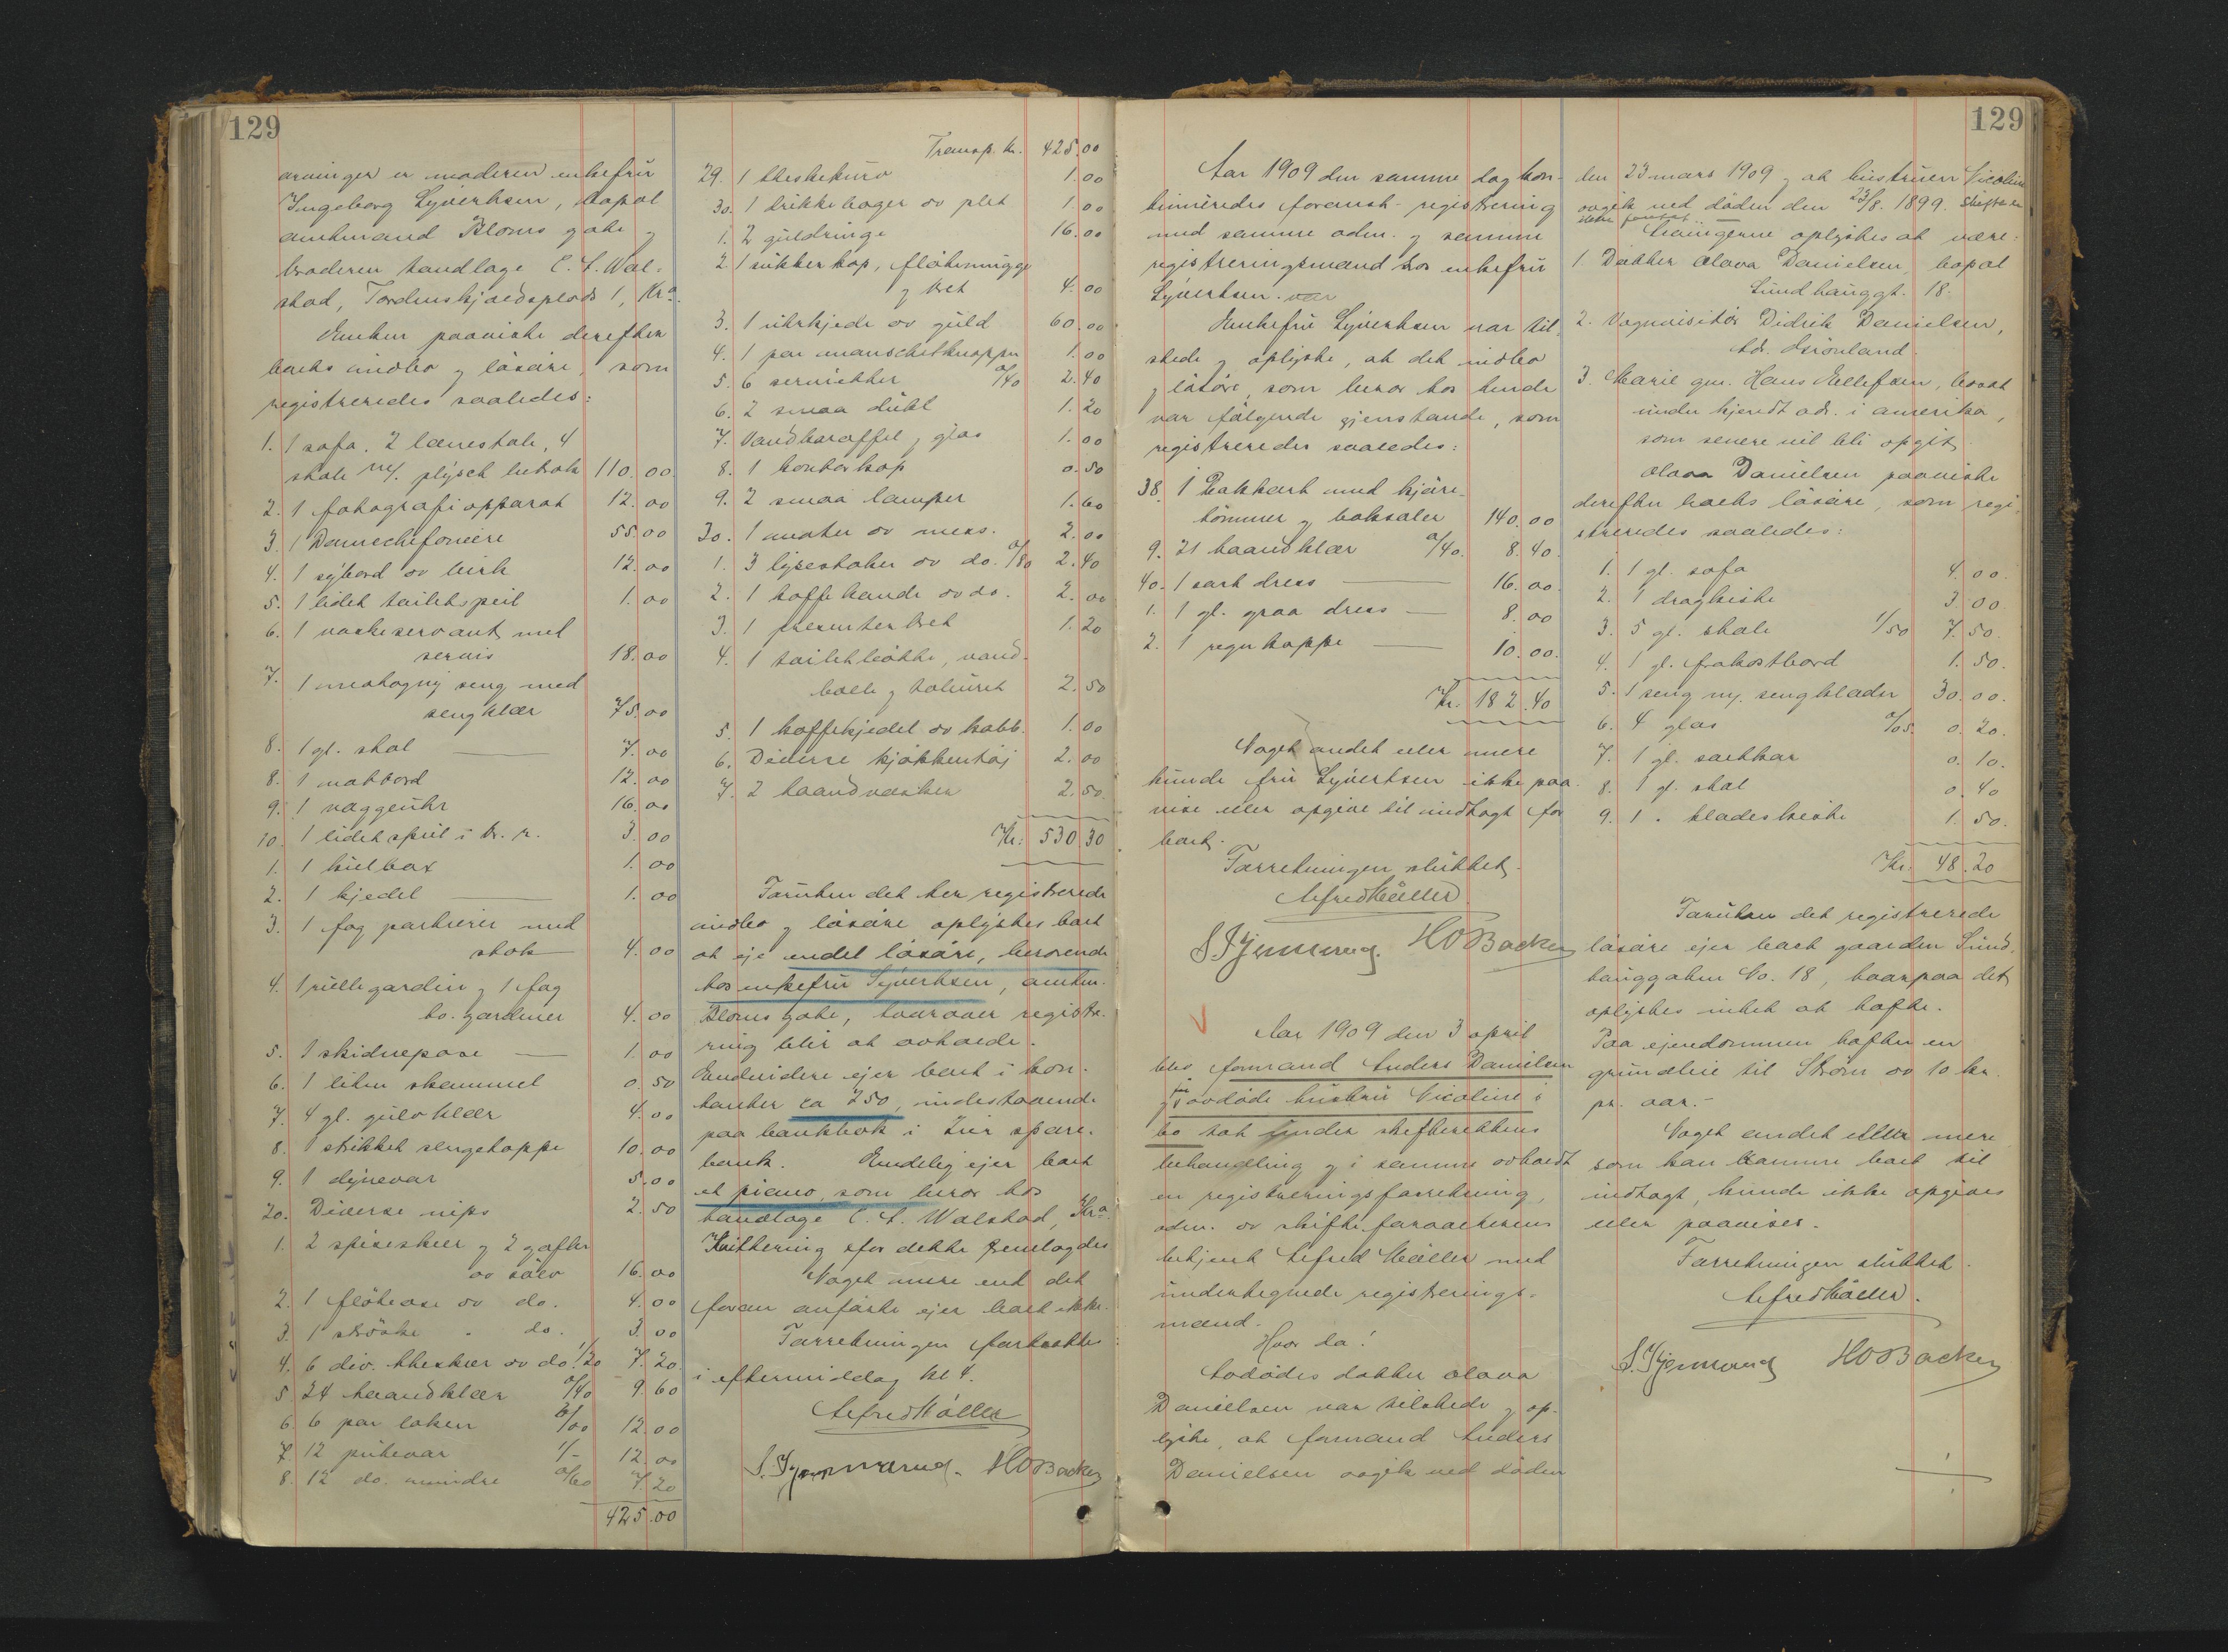 129
arvinger er moderen enkefru
Ingeborg Syvertsen, bopæl
amtmand Bloms gate og
broderen tandlæge C. F. Wal-
stad, Tordenskjoldsplads 1, Kra.
Enken paaviste derefter
boets indbo og løsøre, som
registreredes saaledes:
1. 1 sofa, 2 lænestole, 4
stole m/. plysch betræk 110.00
2. 1 fotografiapparat 12.00
3. 1 Damechefoniere 55.00
4. 1 sybord av birk 12.00
5. 1 lidet toiletspeil 1.00
6. 1 vaskeservant med
servis 18.00
7. 1 mahogny seng med
sengklær 75.00
8. 1 gl. stol 7.00
8. 1 natbord 12.00
9. 1 væggeuhr 16.00
10. 1 lidet speil i br. r. 3.00
1. 1 kulbox 1.00
2. 1 kjedel 1.00
3. 1 fag portierer med
stok 4.00
4. 1 rullegardin og 1 fag
bo. gardiner 4.00
5. 1 skidnepose 1.00
6. 1 liten skammel 0.50
7. 4 gl. gulvklær 4.00
8. 1 strikket sengeteppe 10.00
9. 1 dynevar 5.00
20. Diverse nips 2.50
1. 2 spiseskeer og 2 gafler
av sølv 16.00
2. 1 fløteøse av do. 4.00
3. 1 strøske " do. 3.00
4. 6 div. theskeer av do. 1/20 7.20
5. 24 haandklær a/40 9.60
6. 6 par laken 2/00 12.00
7. 12 putevar 1/- 12.00
8. 12 do. mindre a/60 7.20
425.00
Transp. kr. 425.00
29. 1 theskekurv 1.00
30. 1 drikkebæger av plet 1.00
1. 2 guldringe 16.00
2. 1 sukkerkop, fløtemugge
og bret 4.00
3. 1 uhrkjede av guld 60.00
4. 1 par manschetknapper 1.00
5. 6 servietter a/40 2.40
6. 2 smaa dukl 1.20
7. Vandkaraffel og glas 1.00
8. 1 kontorkop 0.50
9. 2 smaa lamper 1.60
30. 1 morter av mess. 2.00
1. 3 lysestaker av do. a/80 2.40
2. 1 kaffekande av do. 2.00
3. 1 presenterbret 1.20
4. 1 toiletbøtte, vand-
balle og taburet 2.50
5. 1 kaffekjedel av kobb. 1.00
6. Diverse kjøkkentøj 2.00
7. 2 haandvæsker 2.50
Kr. 530.30
Foruten det her registrerede
indbo og løsøre oplystes boet
at eje endel løsøre, beroende
hos enkefru Syvertsen, amtm.
Bloms gate, hvorover registre-
ring blir at avholde.
Endvidere ejer boet i kon-
tanter ca 250, indestaaende
paa bankbok i Lier spare-
bank. Endelig ejer boet
et piano, som beror hos
tandlæge C. F. Walstad, Kra.
Kvittering for dette fremlagdes
Noget mere end det
foran anførte ejer boet ikke.
Forretningen fortsættes
i eftermiddag kl 4.
Alfred Møller
H O Backer
Aar 1909 den samme dag kon-
tinueredes foranst. registrering
med samme adm. og samme
registreringsmænd hos enkefru
Syvertsen. var
Enkefru Syvertsen var til-
stede og oplyste, at det indbo
og løsøre, som beror hos hende
var følgende gjenstande, som
registreredes saaledes:
38. 1 Bokkart med kjøre-
tømmer og boksaler 140.00
9. 21 haandklær a/40. 8.40
40. 1 sort dress 16.00
1. 1 gl. graa dress 8.00
2. 1 regnkappe 10.00
Kr. 182.40
Noget andet eller mere
kunde fru Syvertsen ikke paa-
vise eller opgive til indtægt for
boet.
Forretningen sluttet.
Alfred Møller
H O Backer
Aar 1909 den 3 april
blev formand Anders Danielsen
og før avdøde hustru Nicoline's
bo tat under skifterettens
behandling og i samme avholdt
en registreringsforretning,
adm. av skifteforvalterens
betjent Alfred Møller med
undertegnede registrerings-
mænd.
Hvor da!
Avdødes datter Olava
Danielsen var tilstede og op-
lyste, at formand Anders
Danielsen avgik ved døden
129
den 23 mars 1909 og at hustruen Nicoline
avgik ved døden den 23/8. 1899. Skifte er
ikke foretat.
Arvingerne oplystes at være:
1. Datter Olava Danielsen, bopæl
Sundhauggt. 18.
2. Vognvisitør Didrik Danielsen,
Adr. Grønland.
3. Marie gm. Hans Ellefsen, bosat
under kjendt adr. i Amerika,
som senere vil bli opgit
Olava Danielsen paaviste
derefter boets løsøre, som regi-
streredes saaledes:
1. 1 gl. sofa 4.00.
2. 1 dragkiste 3.00
3. 5 gl. stole 1/50 7.50.
4. 1 gl. frokostbord 1.50.
5. 1 seng m/. sengklæder 30.00.
6. 4 glas a/05. 0.20.
7. 1 gl. saltkar 0.10.
8. 1 gl. stol 0.40
9. 1 " klædeskiste 1.50.
Kr. 48.20
Foruten det registrerede
løsøre ejer boet gaarden Sund-
hauggaten No. 18, hvorpaa det
oplystes intet at hefte.
Paa ejendommen hefter en
grundleie til Strøm av 10 kr.
pr. aar.-
Noget andet eller mere
som kan komme boet til
indtægt, kunde ikke opgives
eller paavises.
Forretningen sluttet.
Alfred Møller.
H O Backer